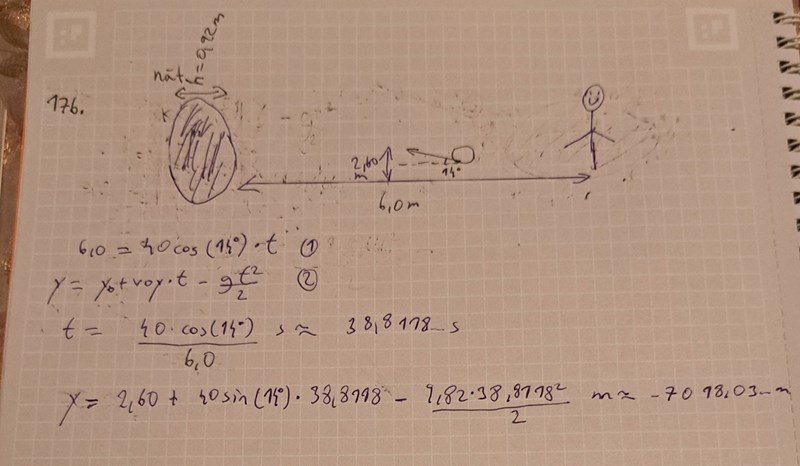 176.
nät h=0,92m
2,60 m
14°
6,0 m
6,0 = 40cos(14°)·t ①
y = y₀+v₀y·t - gt²/2 ②
t = 40·cos(14°)/6,0 s ≈ 38,8118… s
y = 2,60 + 40sin(14°)·38,8118 - 9,82·38,8118²/2 m ≈ -7098,03…m